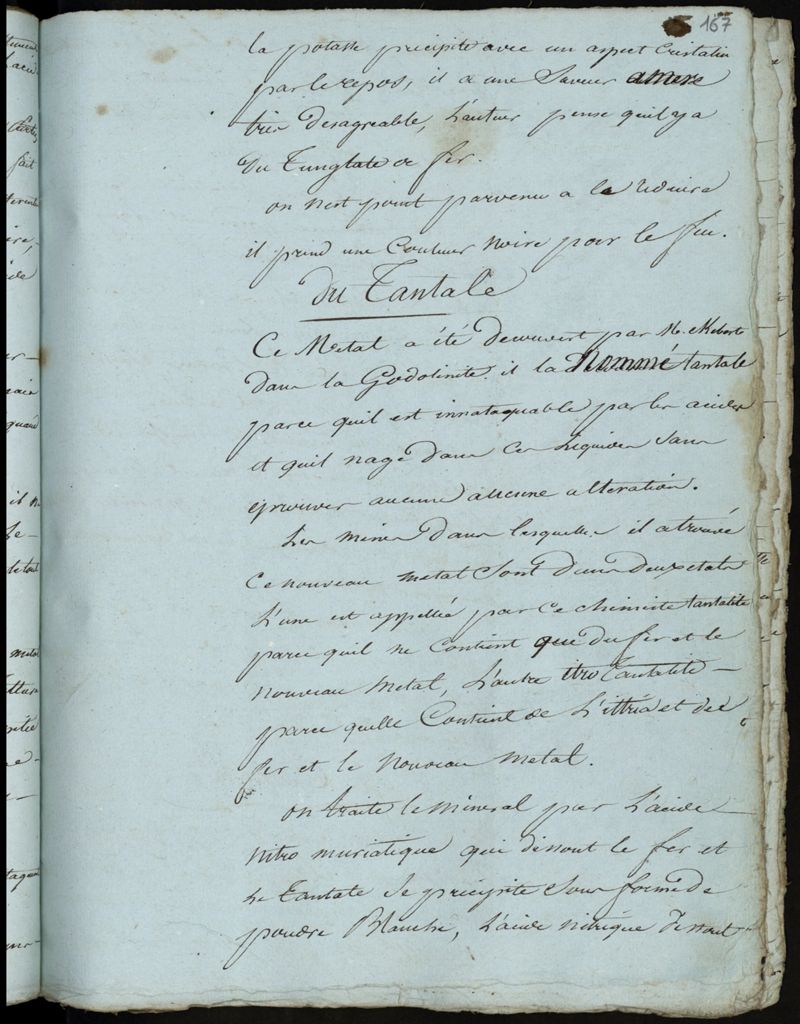 167
la potasse precipite avec un aspect cristalin
par le repos, il a une saveur amere
tres desagreable, L'auteur pense quil y a
du Tungtate de fer.
on nest point parvenu a le reduire
il prend une couleur noire par le feu.
Du Tantale
Ce Metal a été decouvert par M.
dans la Gadolinite. il la Nommé tantale
parce quil est innataquable par les acides
et quil nage dans ces Liquides sans
eprouver aucune alteration.
Les mines dans lesquelles il a trouvé
ce nouveau metal sont dans deux etats
L'une est appellée par ce chimiste tantalite
parce quil ne contient que du fer et le
nouveau metal, L'autre itro Tantalite
parce quelle Contient de L'ittria et de
fer et le nouveau metal.
on traite le mineral par L'acide
nitro muriatique qui dissout le fer et
le Tantate se precipite sous forme de
poudre Blanche, L'acide nitrique dissout